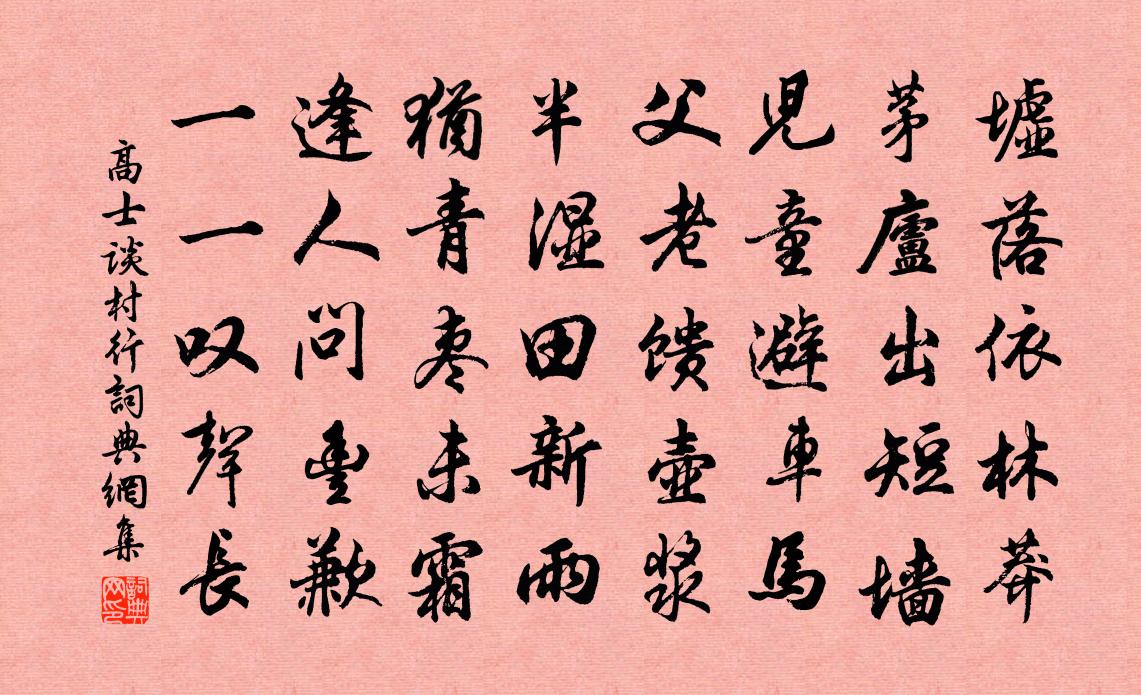 墟落依林莽
茅廬出短墙
児童避車馬
父老馈壺漿
半湿田新雨
猶青枣未霜
逢人問豊歉
一一叹聲長
高士谈村行詞典網集
詞典網印